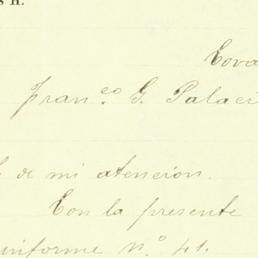 H.
Cova
Fran.co G. Palaci
de mi atencion.
Con la presente
informe n.o 41.